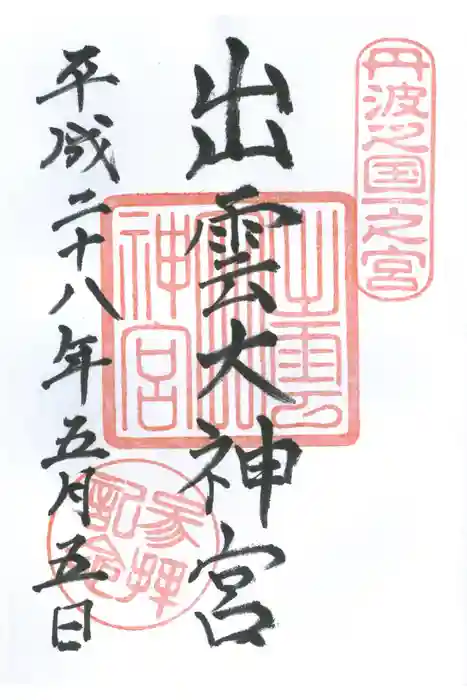 丹波之国一之宮
出雲大神宮
出雲
神宮
平成二十八年五月五日
参拝
記念